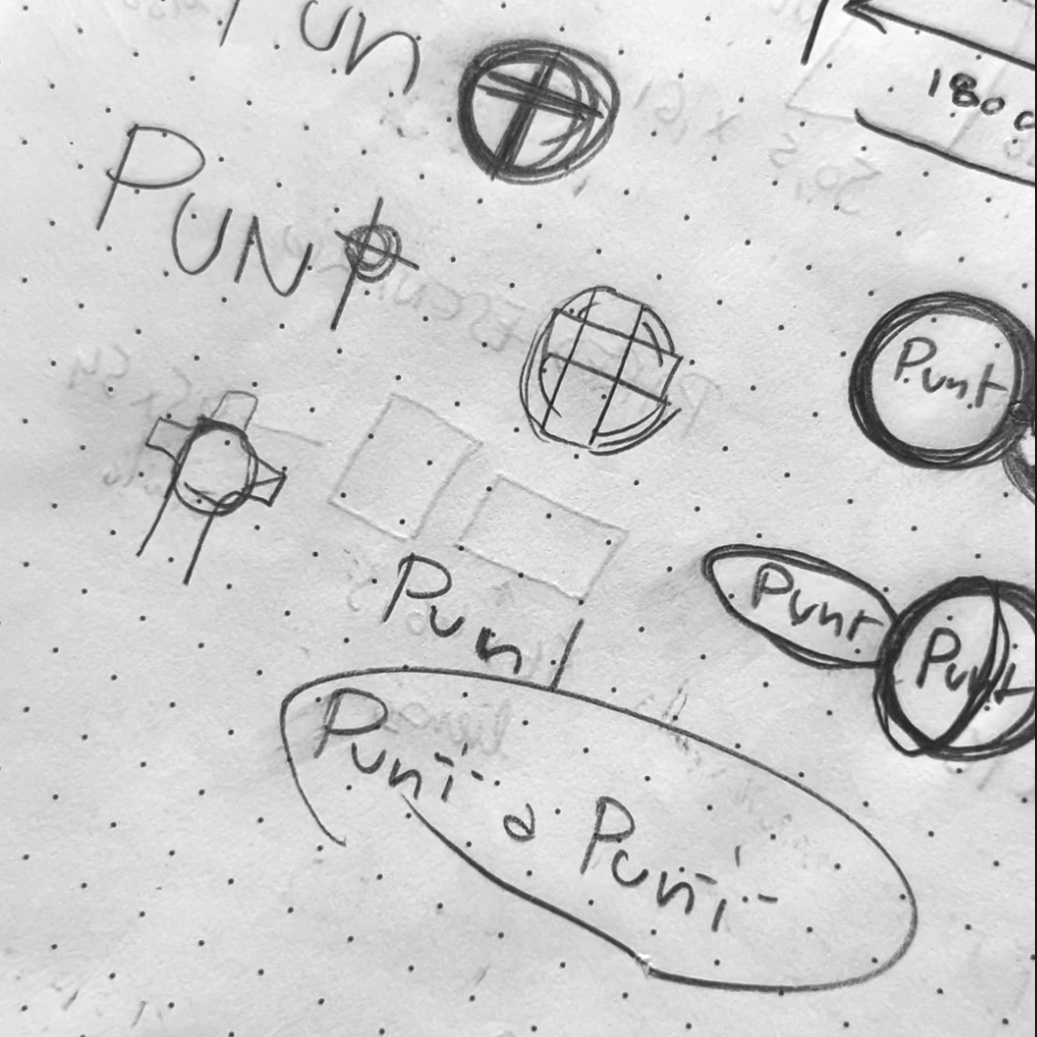 Pun
180
PUNT
Punt
Punt
Punt
Pun
Punt a Punt